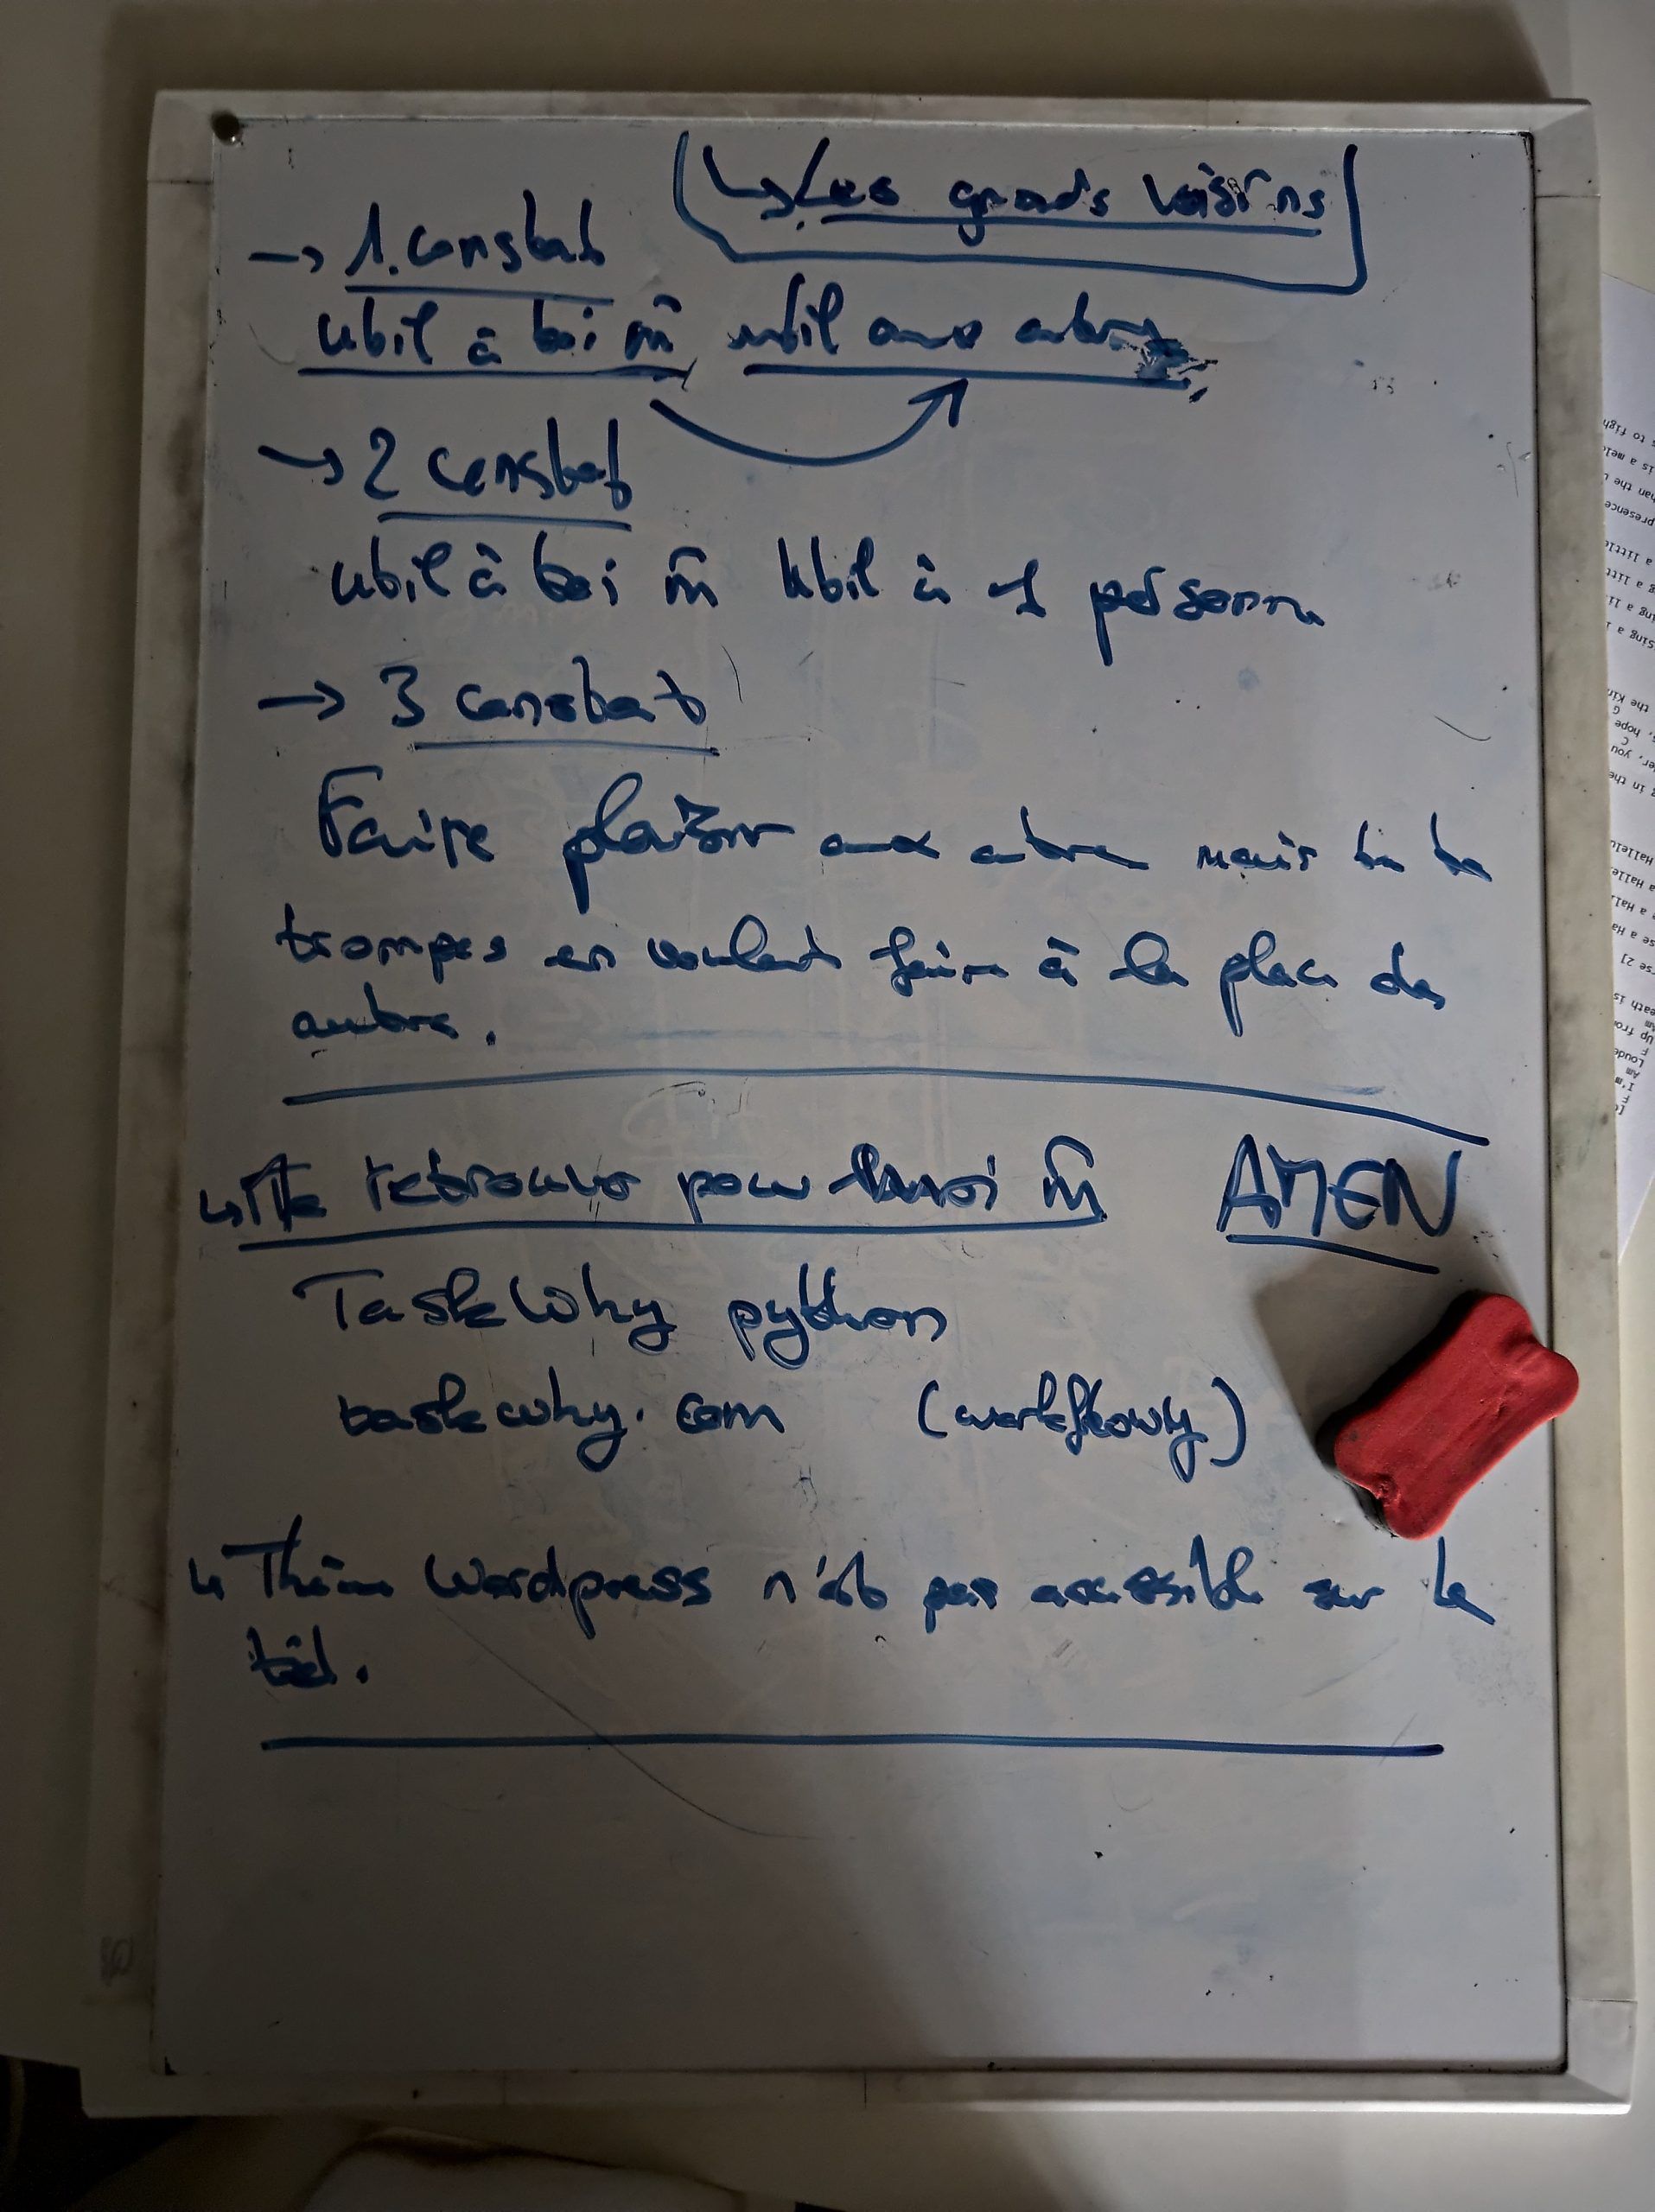 ↳ Les grands voisins
→ 1. constat
util à toi m̂ util aux autres
→ 2 constat
util à toi m̂ util à 1 personne
→ 3 constat
Faire plaisir aux autre mais tu te
trompes en voulant faire à la place des
autres.
↳ Me retrouver pour moi m̂ AMEN
TaskWhy python
taskwhy.com (workflowy)
↳ Thème Wordpress n'est pas acessible sur le
tél.